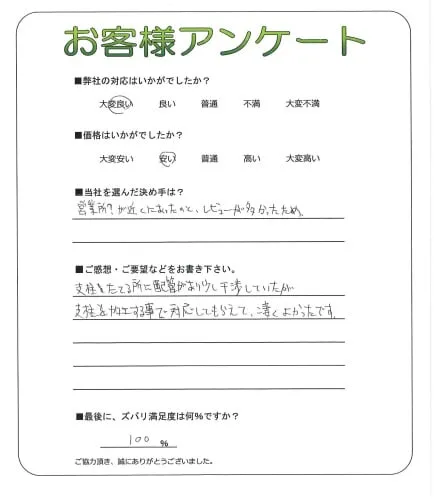 お客様アンケート
■弊社の対応はいかがでしたか?
大変良い 良い 普通 不満 大変不満
■価格はいかがでしたか?
大変安い 安い 普通 高い 大変高い
■当社を選んだ決め手は?
営業所?が近くにあったのと、レビューが多かったため。
■ご感想・ご要望などをお書き下さい。
支柱をたてる所に配管があり少し干渉していたが
支柱を加工する事で対応してもらえて、凄くよかったです。
■最後に、ズバリ満足度は何%ですか?
100 %
ご協力頂き、誠にありがとうございました。